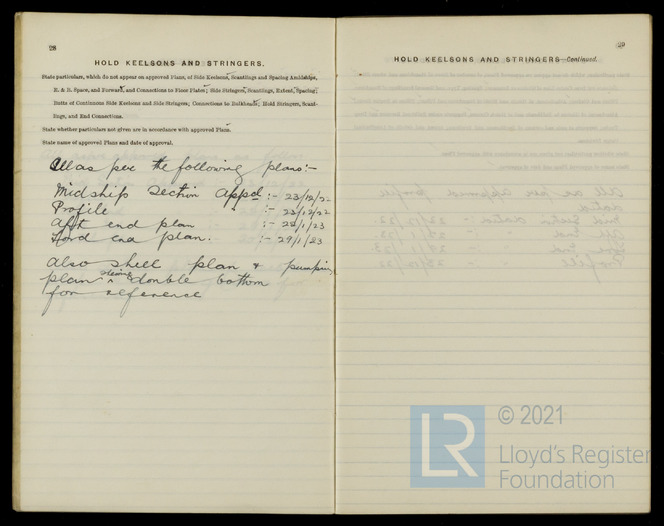 28
HOLD KEELSONS AND STRINGERS.
State particulars, which do not appear on approved Plans, of Side Keelsons, Scantlings and Spacing Amidships,
E. & B. Space, and Forward, and Connections to Floor Plates; Side Stringers, Scantlings, Extent, Spacing;
Butts of Continuous Side Keelsons and Side Stringers; Connections to Bulkheads; Hold Stringers, Scant-
lings, and End Connections.
State whether particulars not given are in accordance with approved Plans.
State name of approved Plans and date of approval.
All as per the following plans:-
Midship Section Appd :- 23/12/22
Profile " :- 23/12/22
Aft end plan :- 29/1/23
Ford end plan. :- 29/1/23
Also shell plan & pumping
plan shewing double bottom
for reference
29
HOLD KEELSONS AND STRINGERS—Continued.
LR
© 2021
Lloyd's Register
Foundation